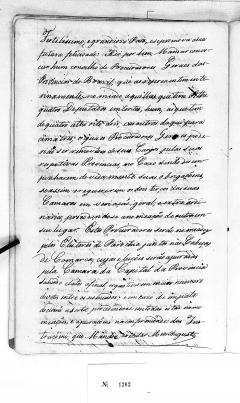 Fidelissimo, e generoso Povo, e esperando a sua
futura felicidade: Hei por bem Mandar convo-
car hum conselho de Procuradores Geraes das
Provincias do Brazil, que as representem inte-
rinamente, nomeando aquellas que tem até
quatro Deputados em cortes, hum; as que tem
de quatro até oito, dois; e as outras daqui para
cima tres; os quaes Procuradores Geraes poderão
ser removidos de seus Cargos pelas suas
respectivas Provincias, no Caso de não desem-
penharem devidamente suas obrigações,
se assim o requererem os dois terços das suas
Camaras em vereação geral, e extraordi-
naria, procedendo-se á nomeação de outros em
seu lugar. Estes Procuradores serão nomeados
pelos Eleitores de Parochia juntos nas Cabeças
de Comarca, cujas eleições serão apuradas
pela Camara da Capital da Provincia
sahindo eleitos afinal os que tiverem maior numero
de votos entre os nomeados, e em caso de empate
decidirá a sorte; procedendo-se em todas estas no-
meações, e apurações na conformidade das Ins-
trucções, que Mandou
№ 1262